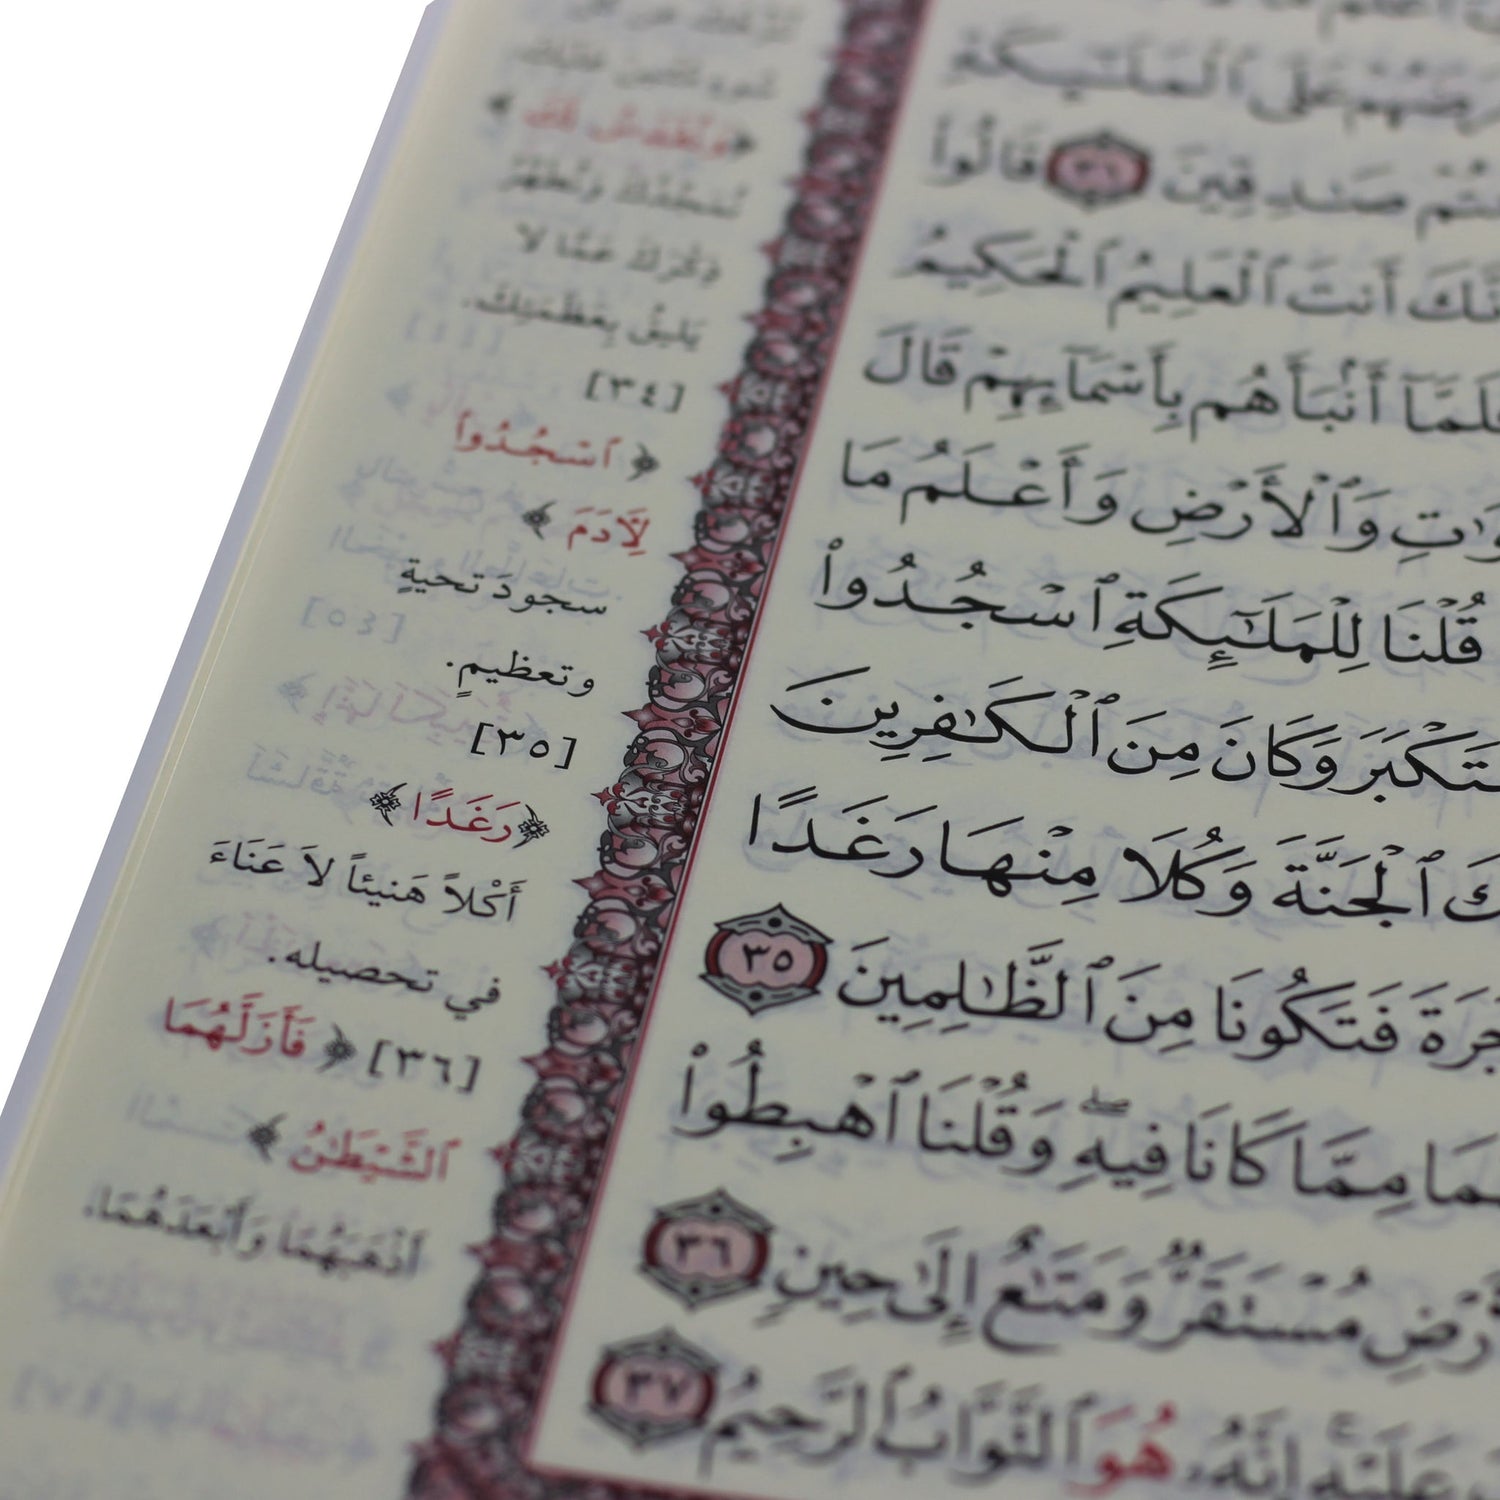 عَلَى ٱلْمَلَـٰٓئِكَةِ
صَـٰدِقِينَ ٣١ قَالُوا۟
أَنتَ ٱلْعَلِيمُ ٱلْحَكِيمُ
أَنۢبَأَهُم بِأَسْمَآئِهِمْ قَالَ
وَٱلْأَرْضِ وَأَعْلَمُ مَا
قُلْنَا لِلْمَلَـٰٓئِكَةِ ٱسْجُدُوا۟
وَكَانَ مِنَ ٱلْكَـٰفِرِينَ
ٱلْجَنَّةَ وَكُلَا مِنْهَا رَغَدًا
فَتَكُونَا مِنَ ٱلظَّـٰلِمِينَ ٣٥
مِمَّا كَانَا فِيهِ ۖ وَقُلْنَا ٱهْبِطُوا۟
مُسْتَقَرٌّ وَمَتَـٰعٌ إِلَىٰ حِينٍ ٣٦
عَلَيْهِ إِنَّهُۥ هُوَ ٱلتَّوَّابُ ٱلرَّحِيمُ ٣٧
﴿وَنُقَدِّسُ لَكَ﴾
نُمَجِّدُكَ وَنُطَهِّرُ
ذِكْرَكَ عَمَّا لَا
يَلِيقُ بِعَظَمَتِكَ.
[٣٤]
﴿ٱسْجُدُوا۟
لِـَٔادَمَ﴾
سجودَ تحيةٍ
وتعظيمٍ.
[٣٥]
﴿رَغَدًا﴾
أَكْلاً هَنيئاً لاَ عَنَاءَ
في تحصيله.
[٣٦] ﴿فَأَزَلَّهُمَا
ٱلشَّيْطَـٰنُ﴾
أَذْهَبَهُمَا وَأَبْعَدَهُمَا.